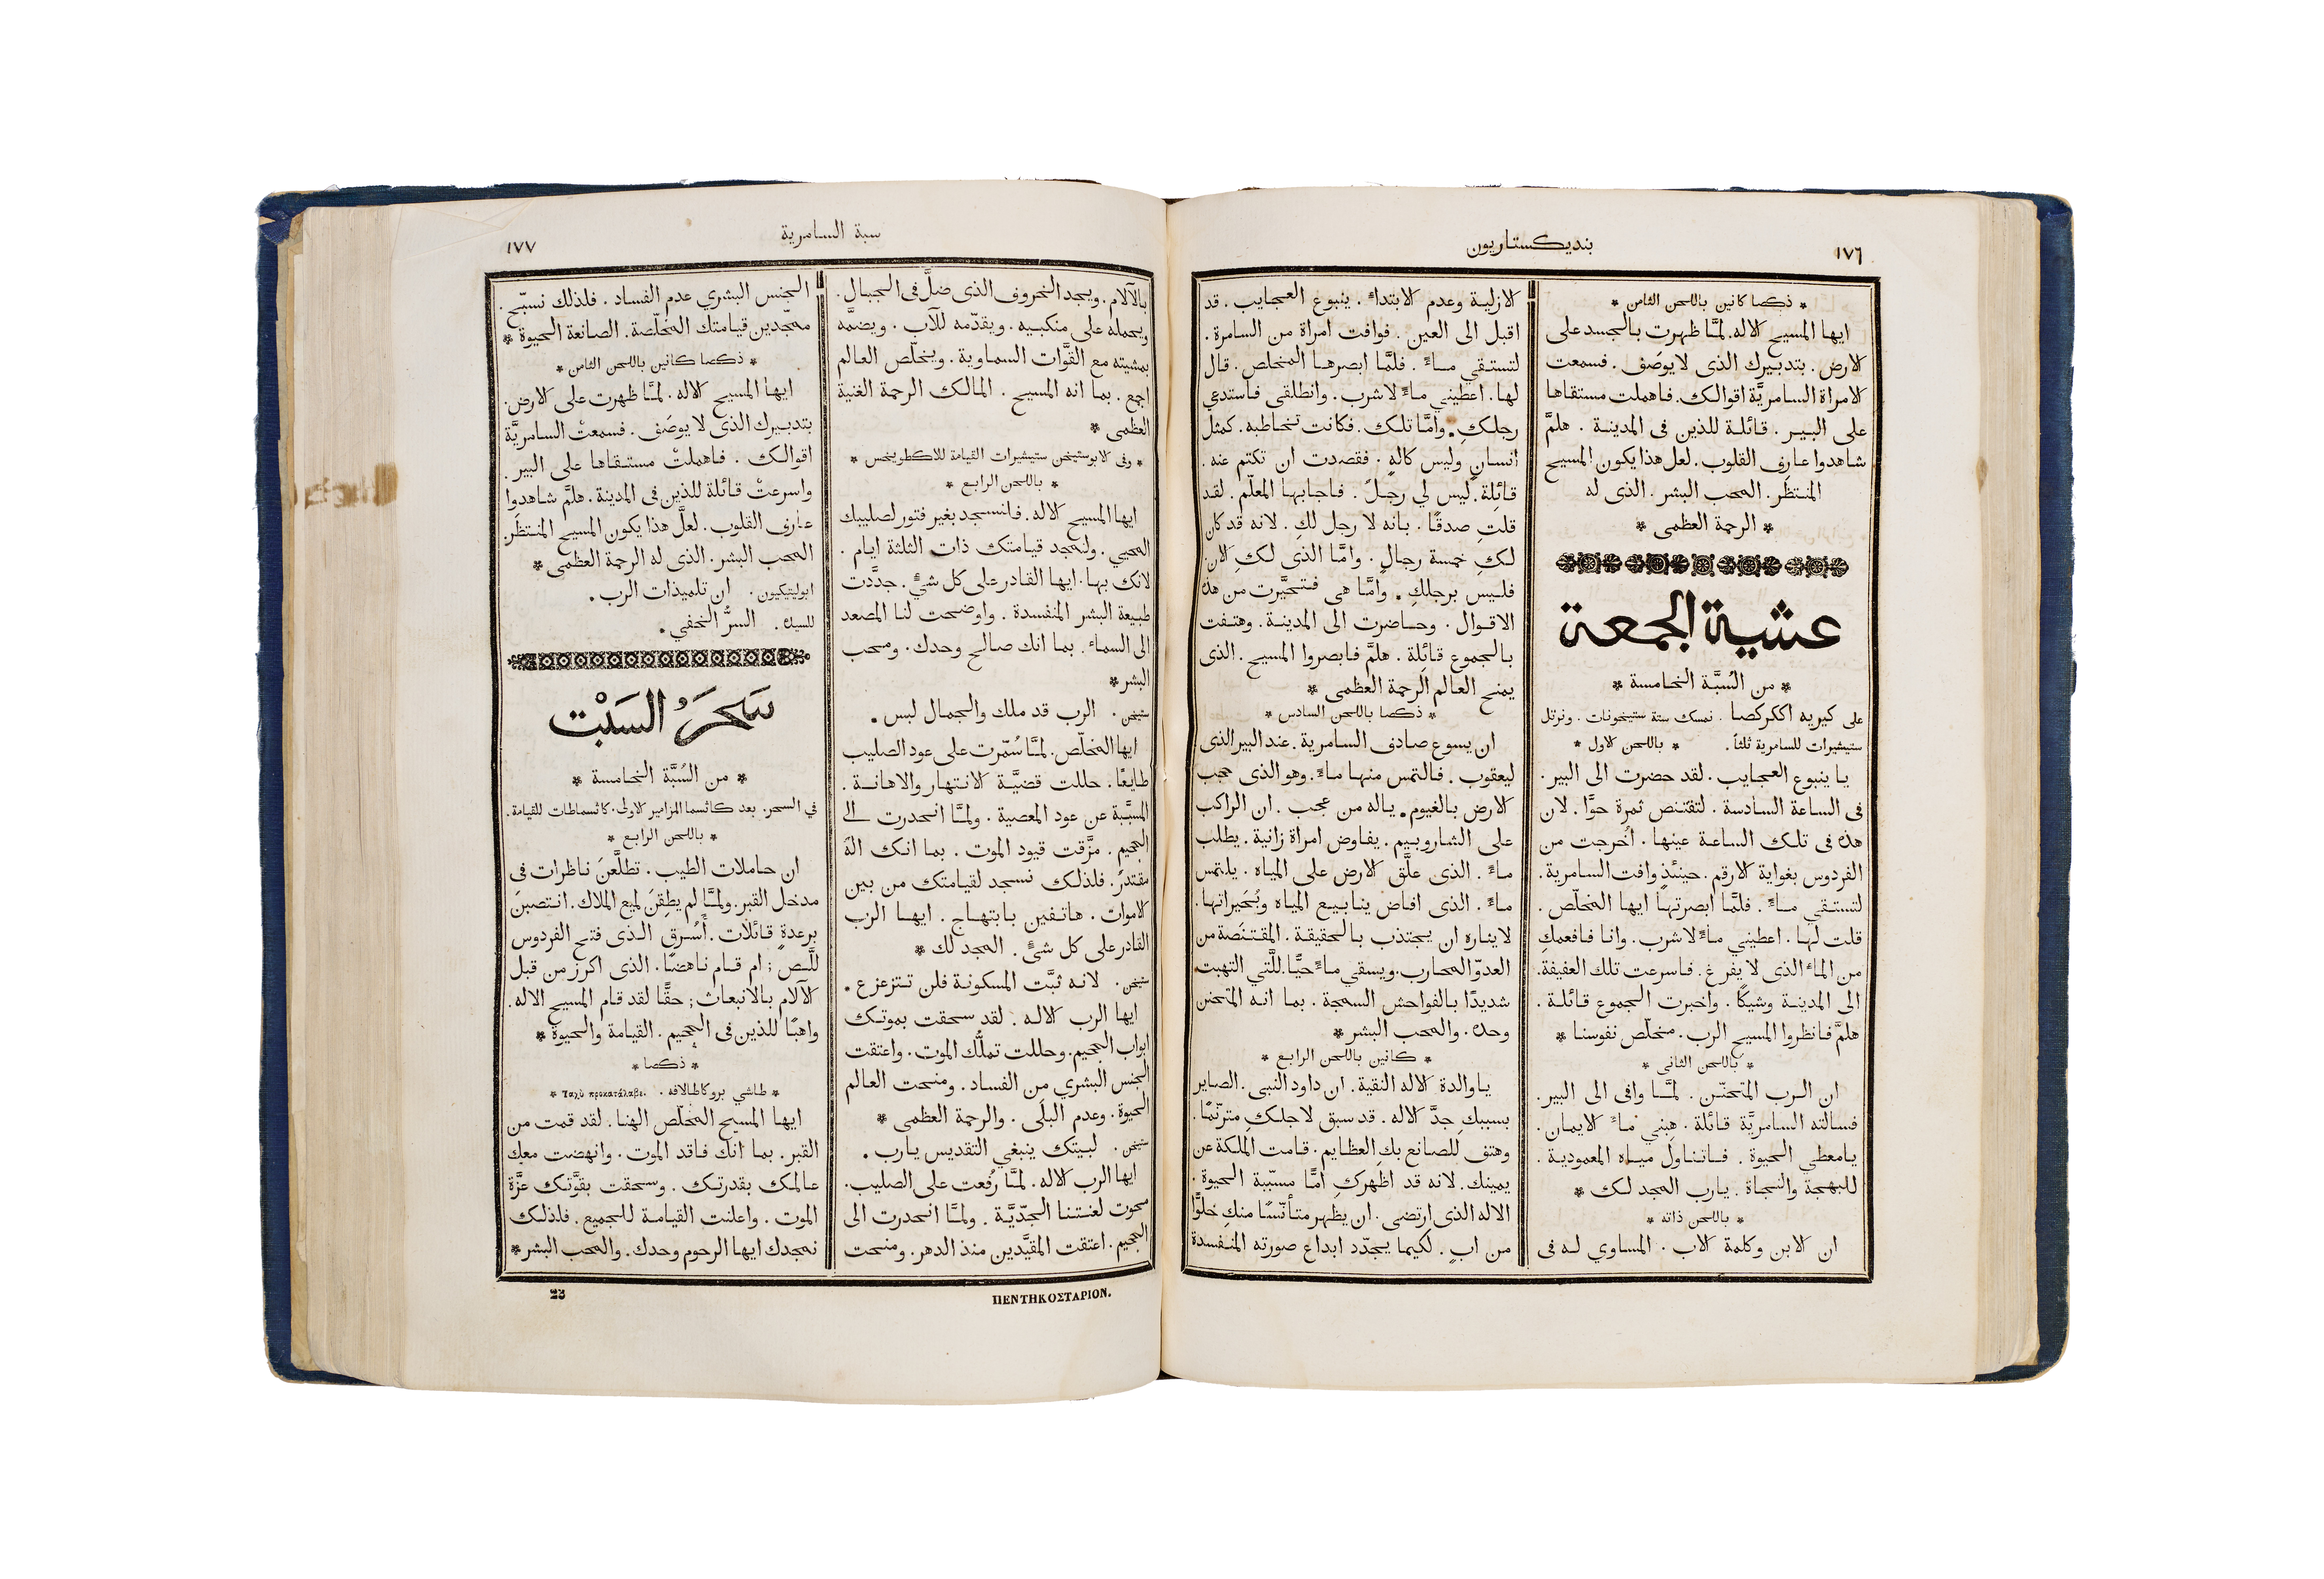 ١٧٦
بنديكستاريون
* ذكصا كانين باللحن الثامن *
ايها المسيح الاله. لمَّا ظهرت بالجسد على
الارض. بتدبيرك الذى لا يوصَف. فسمعت
الامراة السامريَّة اقوالك. فاهملت مستقاها
على البير. قائلة للذين فى المدينة. هلمَّ
شاهدوا عارف القلوب. لعل هذا يكون المسيح
المنتظَر. المحب البشر. الذى له
* الرحمة العظمى *
عشية الجمعة
* من السُبَّة الخامسة *
على كيريه اككركصا. نمسك ستة ستيخونات. ونرتل
ستيشيرات للسامرية ثلثاً. * باللحن الاول *
يا ينبوع العجايب. لقد حضرت الى البير.
فى الساعة السادسة. لتقتنص ثمرة حوَّا. لان
هذه فى تلك الساعة عينها. اُخرجت من
الفردوس بغواية الارقم. حينئذٍ وافت السامرية.
لتستقي ماءً. فلمَّا ابصرتها ايها المخلّص.
قلت لها. اعطيني ماءً لاشرب. وانا فافعمكِ
من الماءِ الذى لا يفرغ. فاسرعت تلك العفيفة.
الى المدينة وشيكًا. واخبرت الجموع قائلة.
هلمَّ فانظروا المسيح الرب. مخلّص نفوسنا *
* باللحن الثانى *
ان الرب المتحنّن. لمَّا وافى الى البير.
فسالته السامريَّة قائلة. هبني ماءَ الايمان.
يا معطي الحيوة. فاتناول مياه المعمودية.
للبهجة والنجاة. يا رب المجد لك *
* باللحن ذاته *
ان الابن وكلمة الاب. المساوي له فى
الازلية وعدم الابتداءِ. ينبوع العجايب. قد
اقبل الى العين. فوافت امراة من السامرة.
لتستقي ماءً. فلمَّا ابصرها المخلص. قال
لها. اعطيني ماءً لاشرب. وانطلقى فاستدعي
رجلكِ. وامَّا تلك. فكانت تخاطبه. كمثل
انسانٍ وليس كالهٍ. فقصدت ان تكتم عنه.
قائِلة. ليس لي رجلٌ. فاجابها المعلّم. لقد
قلتِ صدقًا. بانه لا رجل لكِ. لانه قد كان
لكِ خمسة رجالٍ. وامَّا الذى لكِ الان.
فليس برجلكِ. وامَّا هى فتحيَّرت من هذه
الاقوال. وحاضرت الى المدينة. وهتفت
بالجموع قائِلة. هلمَّ فابصروا المسيح. الذى
يمنح العالم الرحمة العظمى *
* ذكصا باللحن السادس *
ان يسوع صادف السامرية. عند البير الذى
ليعقوب. فالتمس منها ماءً. وهو الذى حجب
الارض بالغيوم. ياله من عجب. ان الراكب
على الشاروبيم. يفاوض امراة زانية. يطلب
ماءً. الذى علَّق الارض على المياه. يلتمس
ماءً. الذى افاض ينابيع المياه وبُحَيراتها.
لايثاره ان يجتذب بالحقيقة. المقتنَصة من
العدوّ المحارب. ويسقي ماءً حيًّا. للَّتي التهبت
شديدًا بالفواحش السمجة. بما انه المتحنن
وحده. والمحب البشر *
* كانين باللحن الرابع *
يا والدة الاله النقية. ان داود النبى. الصاير
بسببكِ جدَّ الاله. قد سبق لاجلكِ مترنّمًا.
وهتف للصانع بكِ العظايم. قامت الملكة عن
يمينك. لانه قد اظهركِ امًّا مسبّبة الحيوة.
الاله الذى ارتضى. ان يظهر متأنّسًا منكِ خلوًّا
من ابٍ. لكيما يجدّد ابداع صورته المنفسدة
سبة السامرية
١٧٧
بالآلام. ويجد الخروف الذى ضلَّ فى الجبال.
ويحمله على منكبيه. ويقدّمه للآب. ويضمَّه
بمشيته مع القوَّات السماوية. ويخلّص العالم
اجمع. بما انه المسيح. المالك الرحمة الغنية
العظمى *
* وفى الابوستيخن ستيشيرات القيامة للاكطويخس *
* باللحن الرابع *
ايها المسيح الاله. فلنسجد بغير فتور لصليبك
المحيي. ولنمجد قيامتك ذات الثلثة ايام.
لانك بها. ايها القادر على كل شئٍ. جدَّدت
طبيعة البشر المنفسدة. واوضحت لنا المصعد
الى السماءِ. بما انك صالح وحدك. ومحب
البشر *
ستيخن. الرب قد ملك والجمال لبس.
ايها المخلّص. لمَّا سُمّرت على عود الصليب
طايعًا. حللت قضيَّة الانتهار والاهانة.
المسبَّبة عن عود المعصية. ولمَّا انحدرت الى
الجحيم. مزَّقت قيود الموت. بما انك الهٌ
مقتدرٌ. فلذلك نسجد لقيامتك من بين
الاموات. هاتفين بابتهاج. ايها الرب
القادر على كل شئٍ. المجد لك *
ستيخن. لانه ثبَّت المسكونة فلن تتزعزع.
ايها الرب الاله. لقد سحقت بموتك
ابواب الجحيم. وحللت تملُّك الموت. واعتقت
الجنس البشري من الفساد. ومنحت العالم
الحيوة. وعدم البلَى. والرحمة العظمى *
ستيخن. لبيتك ينبغي التقديس يا رب.
ايها الرب الاله. لمَّا رُفعت على الصليب.
محوت لعنتنا الجدّيَّة. ولمَّا انحدرت الى
الجحيم. اعتقت المقيَّدين منذ الدهر. ومنحت
الجنس البشري عدم الفساد. فلذلك نسبّح.
ممجّدين قيامتك المخلّصة. الصانعة الحيوة *
* ذكصا كانين باللحن الثامن *
ايها المسيح الاله. لمَّا ظهرت على الارض.
بتدبيرك الذى لا يوصَف. فسمعتْ السامريَّة
اقوالك. فاهملتْ مستقاها على البير.
واسرعتْ قائلة للذين فى المدينة. هلمَّ شاهدوا
عارف القلوب. لعلَّ هذا يكون المسيح المنتظَر.
المحب البشر. الذى له الرحمة العظمى *
ابوليتيكيون. ان تلميذات الرب.
للسيدة. السرُّ الخفي.
سَحَرُ السَبْت
* من السُبَّة الخامسة *
في السحر. بعد كاثسما المزامير الاولى. كاثسماطات للقيامة.
* باللحن الرابع *
ان حاملات الطيب. تطلَّعنَ ناظرات فى
مدخل القبر. ولمَّا لم يطِقنَ لميع الملاك. انتصبنَ
برعدةٍ قائلات. أَسُرق الذى فتح الفردوس
للَّص; ام قام ناهضًا. الذى اكرز من قبل
الآلام بالانبعاث; حقًّا لقد قام المسيح الاله.
واهبًا للذين فى الجحيم. القيامة والحيوة *
* ذكصا *
* طاشي بروكاطالافه. Ταχὺ προκατάλαβε. *
ايها المسيح المخلّص الهنا. لقد قمت من
القبر. بما انك فاقد الموت. وانهضت معك
عالمك بقدرتك. وسحقت بقوَّتك عزَّة
الموت. واعلنت القيامة للجميع. فلذلك
نمجدك ايها الرحوم وحدك. والمحب البشر *
ΠΕΝΤΗΚΟΣΤΑΡΙΟΝ.
23